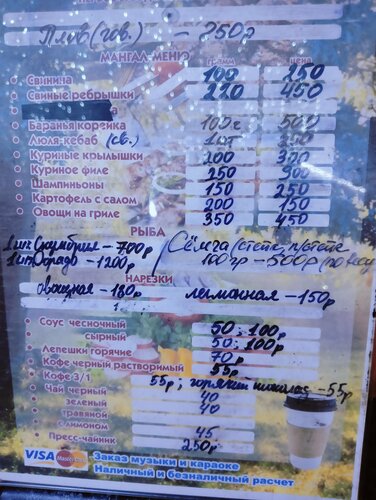 Плов (гов.) - 250р
МАНГАЛ-МЕНЮ грамм цена
• Свинина 100 250
• Свиные ребрышки 220 450
• Баранья корейка 100г 500
• Люля-кебаб (св.) 1шт
• Куриные крылышки 200 300
• Куриное филе 250 300
• Шампиньоны 150 250
• Картофель с салом 200 150
• Овощи на гриле 350 450
РЫБА
1шт Скумбрия - 700р Сёмга (стейк,
1шт Дорадо - 1200р 100гр - 500р
НАРЕЗКИ
овощная - 180р лимонная - 150р
• Соус чесночный 50; 100р
сырный 50; 100р
• Лепешки горячие 70р
• Кофе черный растворимый 55р
• Кофе 3/1 55р; горячий шоколад - 55р
• Чай черный 40
зеленый 40
травяной
с лимоном 45
• Пресс-чайник 250р
VISA MasterCard Заказ музыки и караоке
Наличный и безналичный расчет